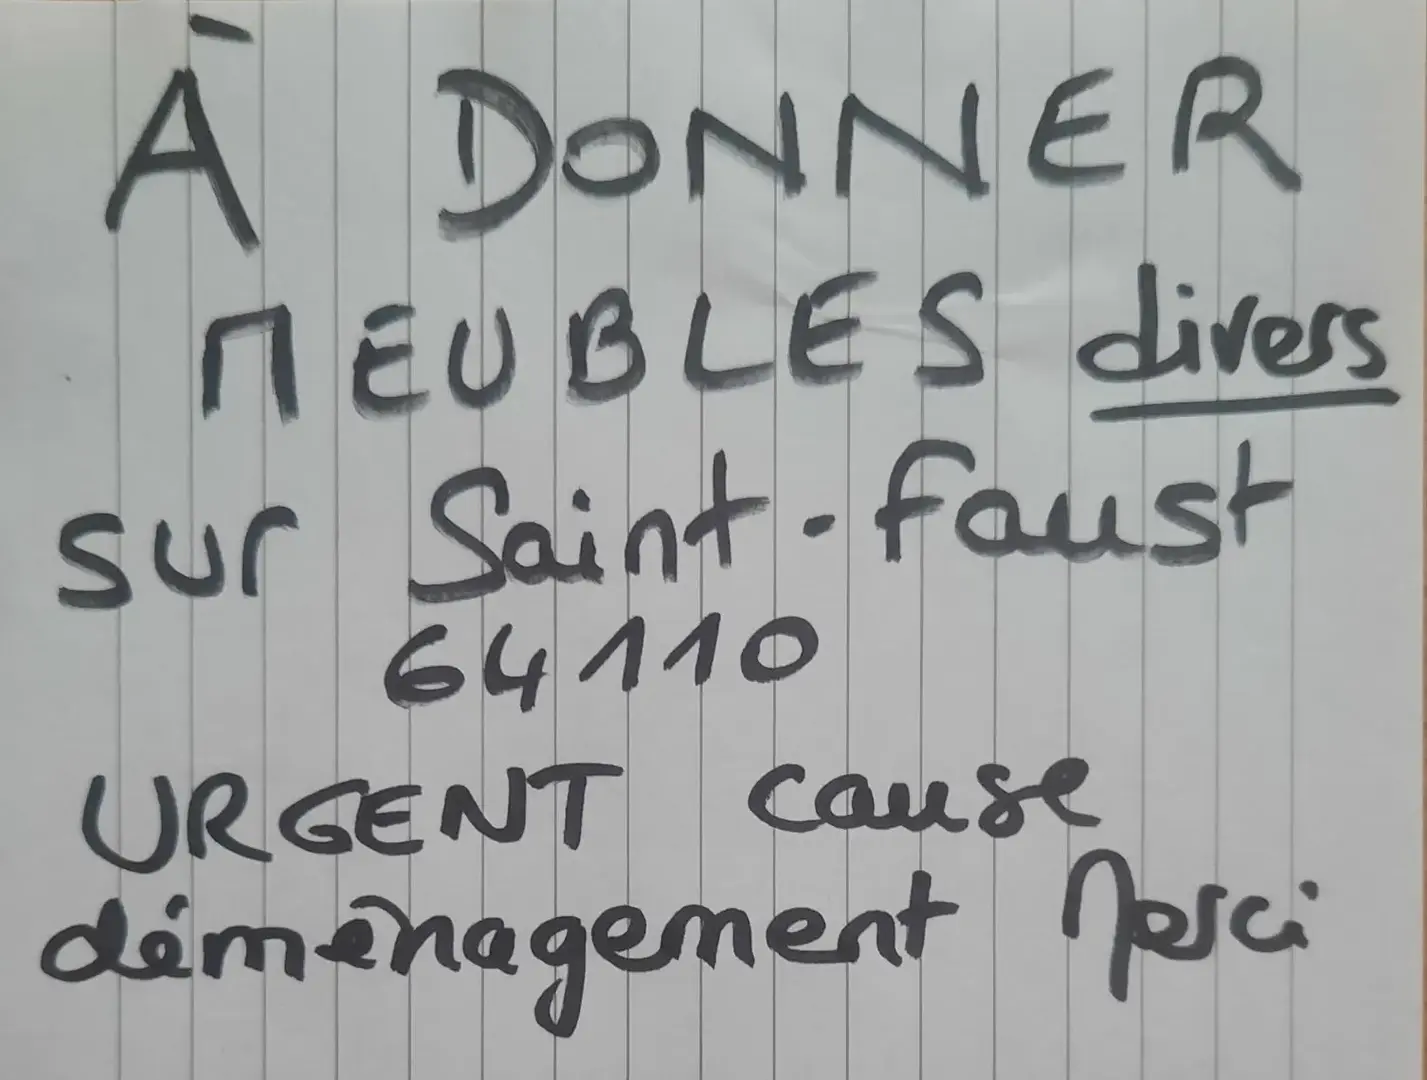 À DONNER
MEUBLES divers
sur Saint-Faust
64110
URGENT cause
déménagement Merci